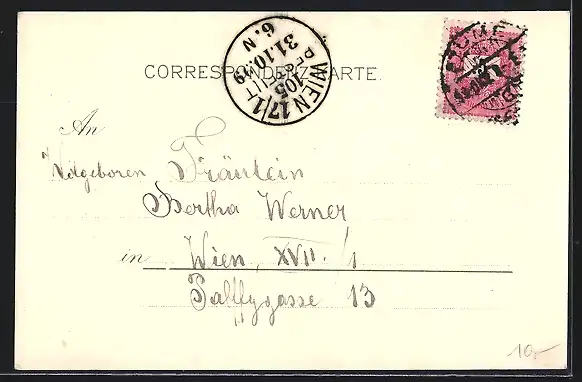 CORRESPONDENZ-KARTE.
WIEN 17/1
105
BESTELLT
31.10.99
6.N
An
Wolgeboren Fräulein
Bertha Werner
in Wien, XVII./1
Palffygasse 13
10,-